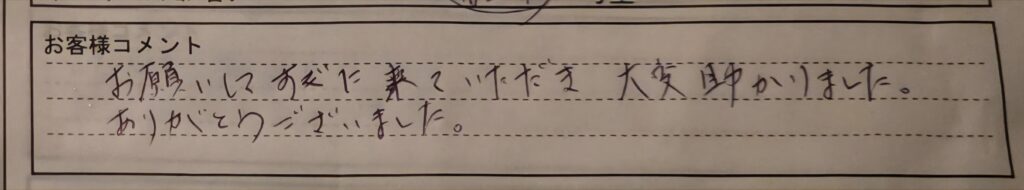 お客様コメント
お願いして すぐに 来て いただき 大変 助かりました。
ありがとうございました。